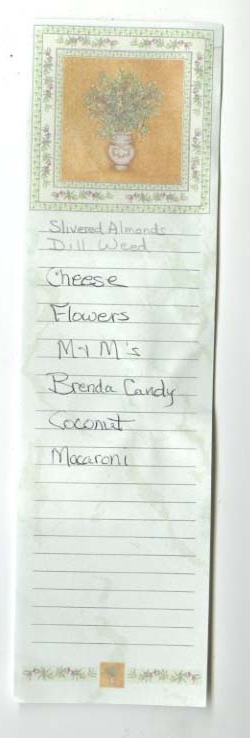 Slivered Almonds
Dill Weed
Cheese
Flowers
M+M's
Brenda Candy
Coconut
Macaroni